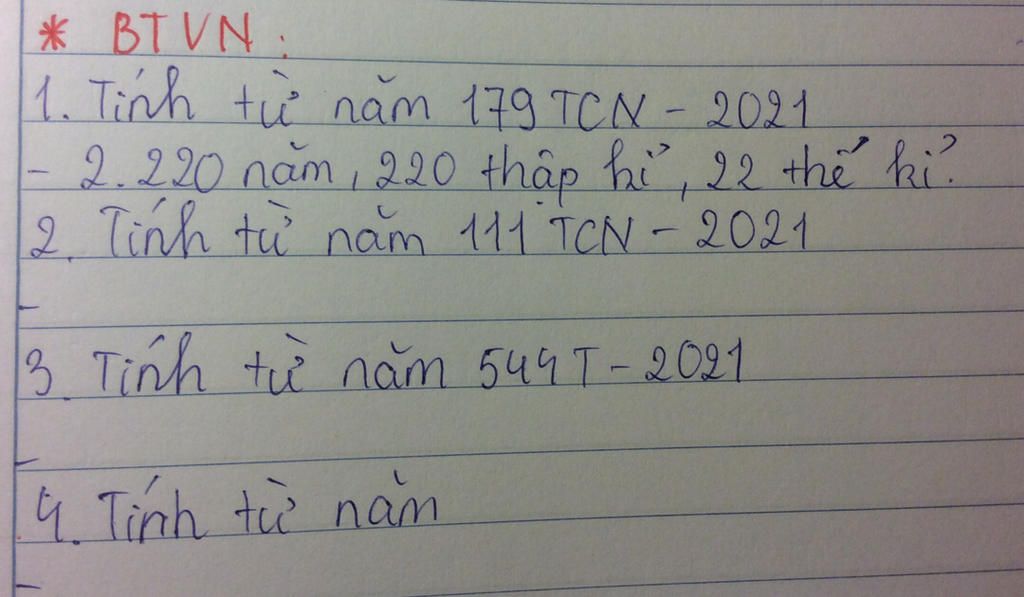 * BTVN:
1. Tính từ năm 179 TCN - 2021
- 2.220 năm, 220 thập kỉ, 22 thế kỉ.
2. Tính từ năm 111 TCN - 2021
-
3. Tính từ năm 544 T - 2021
-
4. Tính từ năm
-